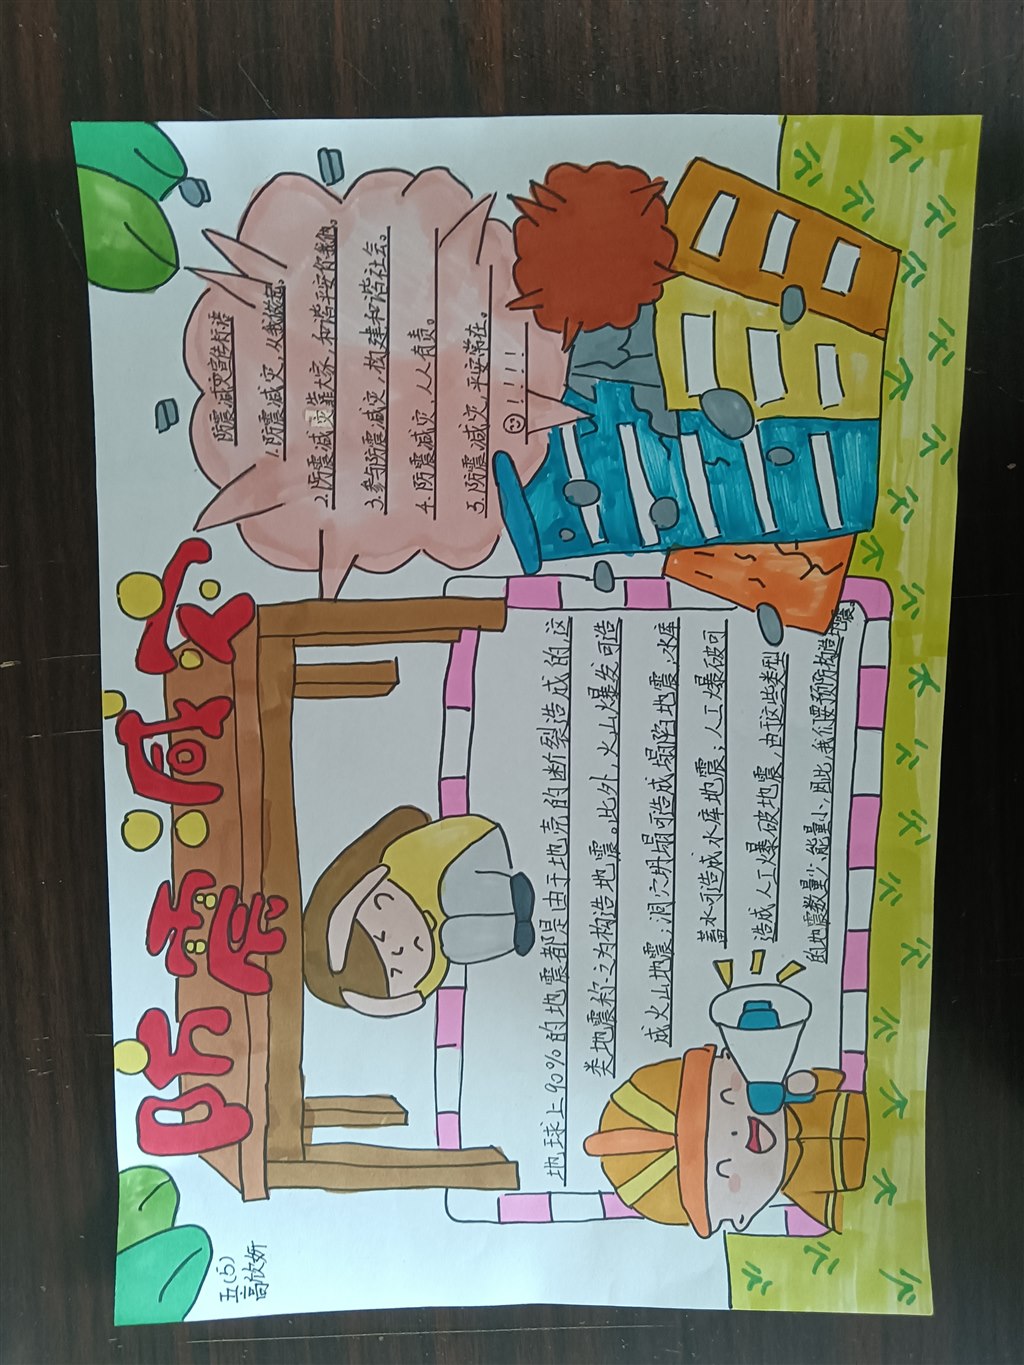 五(5)
高欣妍
防震减灾
地球上90%的地震都是由于地壳的断裂造成的,这
类地震称之为构造地震。此外,火山爆发可造
成火山地震;洞穴坍塌可造成塌陷地震;水库
蓄水可造成水库地震;人工爆破可
造成人工爆破地震,由于这些类型
的地震数量少,能量小,因此,我们要预防构造地震。
防震减灾宣传标语
1.防震减灾,从我做起。
2.防震减灾靠大家,和谐平安你我他。
3.参与防震减灾,构建和谐社会。
4.防震减灾,人人有责。
5.防震减灾,平安常在。
!!!!